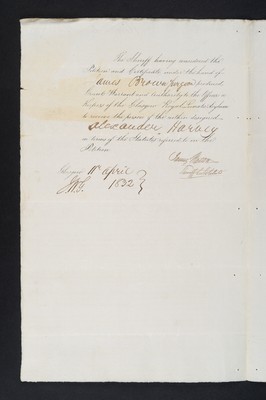 The Sheriff having considered the
Petition and Certificate under the hand of
James Brown Surgeon
Grants Warrant and authority to the Officer or
Keepers of the Glasgow Royal Lunatic Asylum
to receive the person of the within designed
Alexander Harvey
in terms of the Statutes referred to in the
Petition
Glasgow 11th April
1832